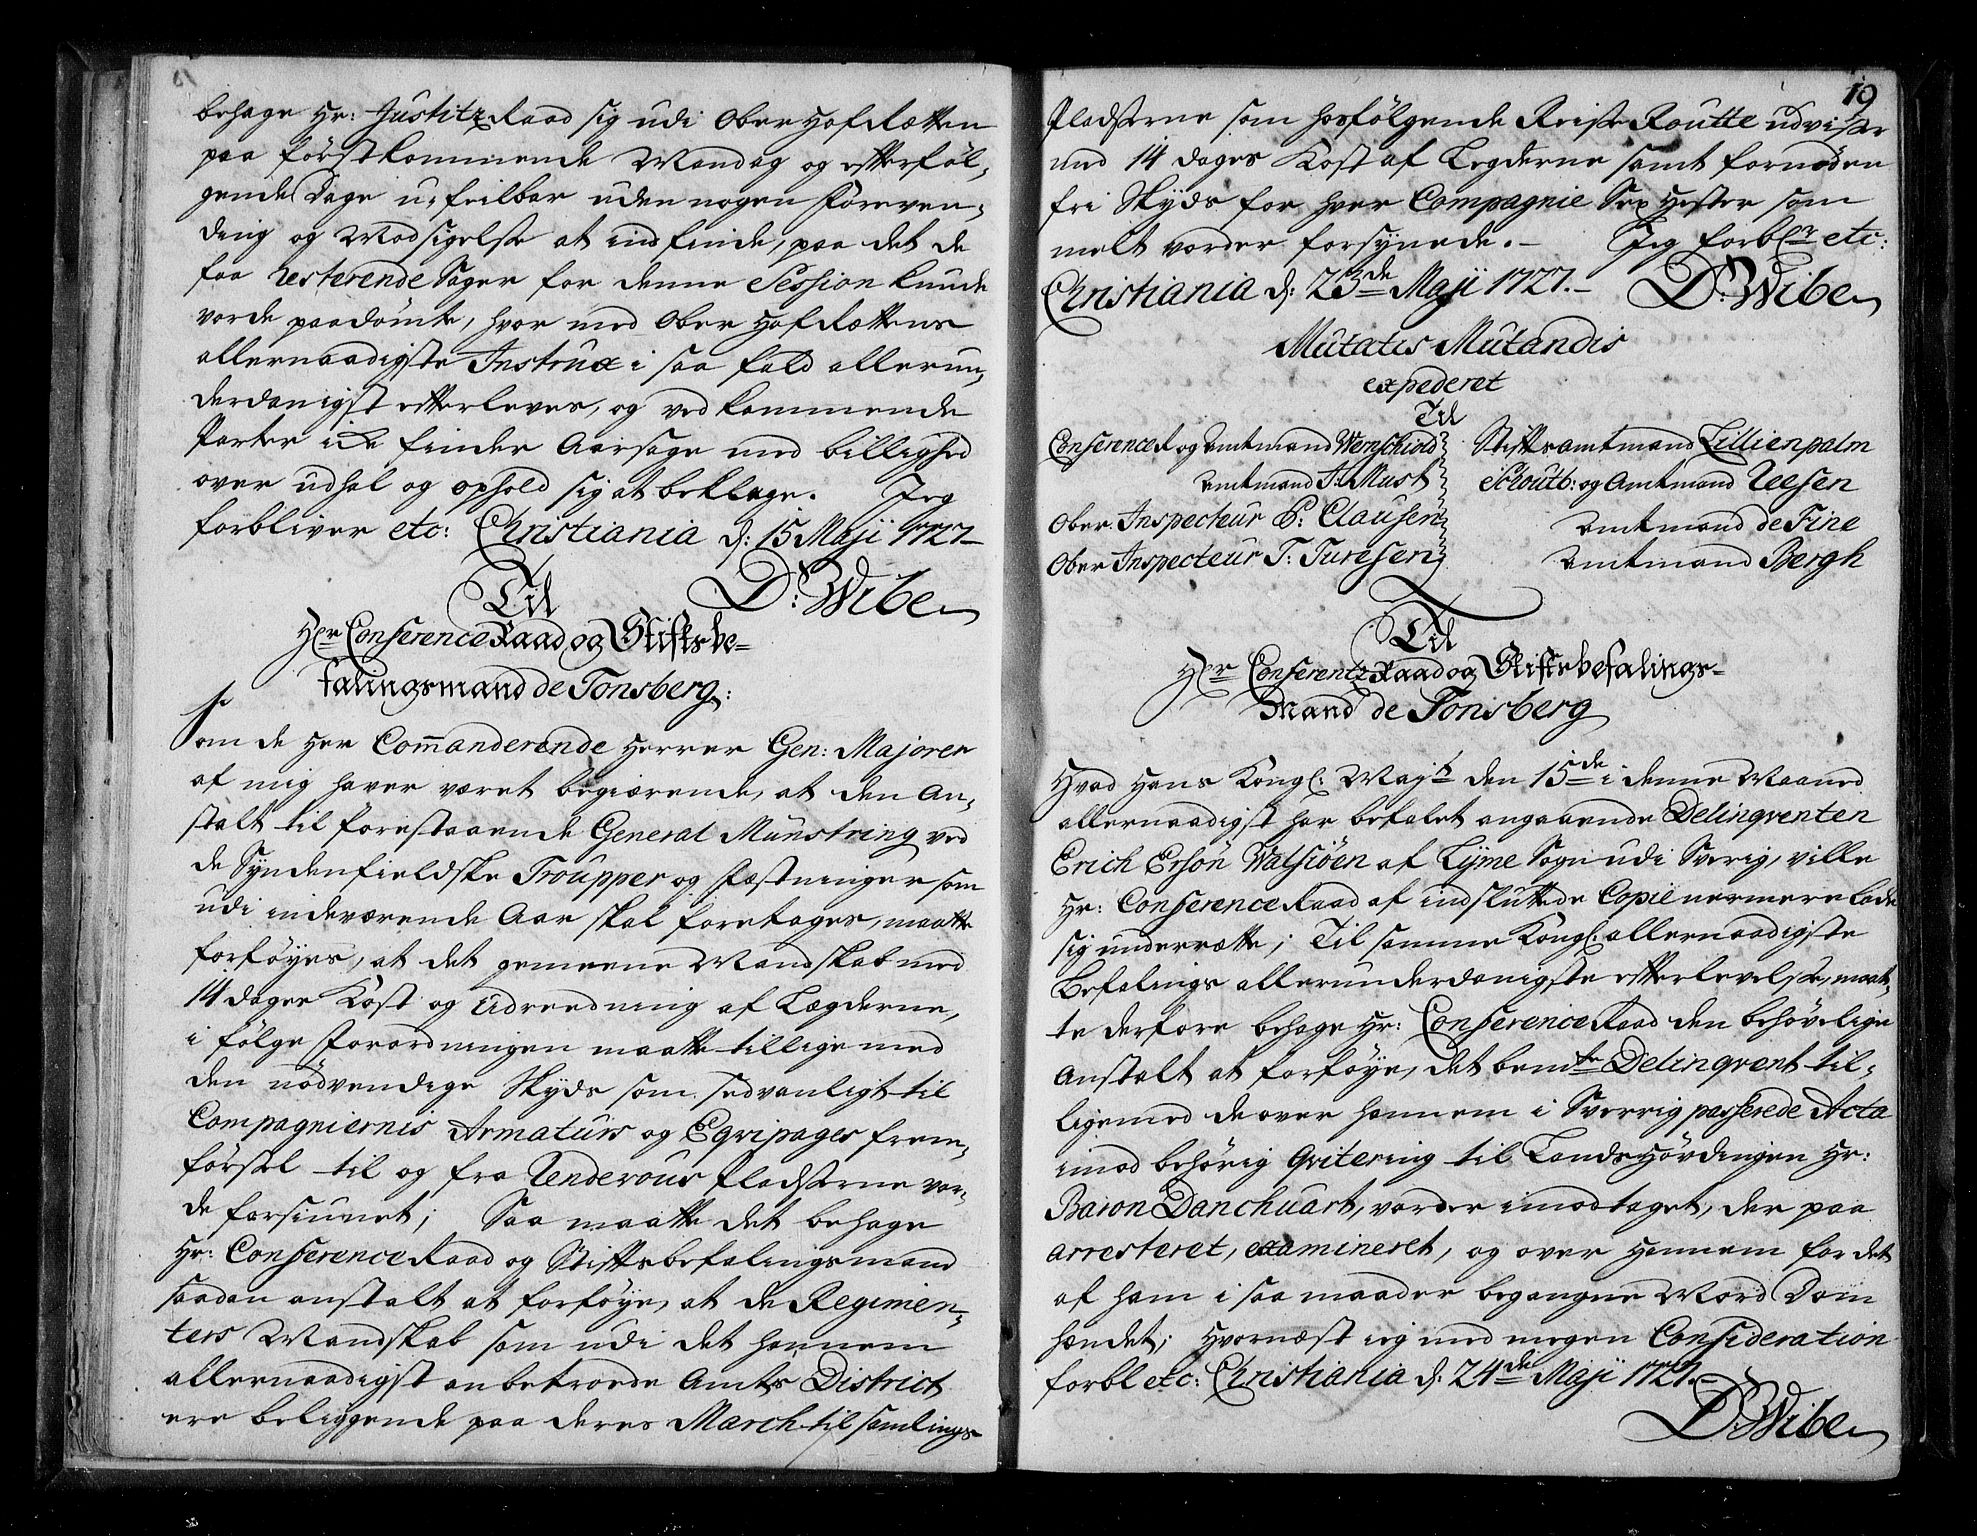 behage Hr: Justitz Raad sig udi Ober Hof Rætten
paa förstkommende Mandag og efterföl-
gende Dage u-feilbar uden nogen Föreven-
ding og Modsigelse at indfinde, paa det de
faa resterende Sager for denne Session kunde
vorde paadömte, hvor med Ober Hof Rættens
allernaadigste Instrux i saa fald allerun-
derdanigst efterleves, og vedkommende
Parter icke finder Aarsage med billighed
over udhal og ophold sig at beklage. Jeg
forbliver etc: Christiania d: 15 Maji 1727
D: Wibe
Til
Hr Conference Raad og Stiftsbe-
falingsmand de Tonsberg:
Som de Her Commanderende Herrer Gen: Majorer
af mig haver været begiærende, at den An-
stalt til forestaaende General Münstring ved
de Syndenfieldske Troupper og Fæstninger som
udi indeværende Aar skal foretages, maatte
forföyes, at det gemeene Mandskab med
14 dages Kost og Udreedning af Lægderne,
i fölge Forordningen maatte tillige med
den nödvendige Skyds som sedvanligt til
Compagniernis Armaturs og Eqvipages frem-
försel til og fra Rendevous Pladserne vor-
de forsiunet; Saa maatte det behage
Hr: Conference Raad og Stiftsbefalingsmand
saadan anstalt at forföye, at de Regimen-
ters Mandskab som udi det hannem
allernaadigst anbetroede Amts District
ere beliggende paa deres March til samlings
19
Pladserne som hosfölgende Reise Routte udviser
med 14 dages Kost af Legderne samt fornöden
fri Skyds for hver Compagnie Sex Hester som
melt vorder forsynede. Jeg forbl:r etc:
Christiania d: 23de Maji 1727. D: Wibe
Mutatis Mutandis
expederet
Til
Conference R og Amtmand Wernschiold Stiftsamtmand Lillienpalm
Amtmand J: Must Schoutb: og Amtmand Ueesen
Ober Inspecteur P: Clausen Amtmand de Fine
Ober Inspecteur T: Turesen Amtmand Bergh
Til
Hr Conferentz Raad og Stiftsbefalings-
Mand de Tonsberg
Hvad Hans Kongl: Mayt den 15de i denne Maaned
allernaadigst har befalet angaaende Delinqventen
Erich Ersön Walsiöen af Lyme Sogn udi Sverig, ville
Hr: Conference Raad af indsluttede Copie nermere lade
sig underrætte; Til samme Kongl: allernaadigste
Befalings allerunderdanigste efterlevelse, maat-
te derfore behage Hr: Conference Raad den behövelige
Anstalt at forföye, det bemte Delinqvent til-
ligemed de over hannem i Sverrig passerede Acta
imod behörig Qvitering til Landshövdingen Hr:
Baron Danckuart, vorder imodtaget, der paa
arresteret, examineret, og over Hannem for det
af ham i saa maader begangne Mord Dom
hændet; Hvornæst ieg med megen Consideration
forbl etc: Christiania d: 24de Maji 1727.
D: Wibe